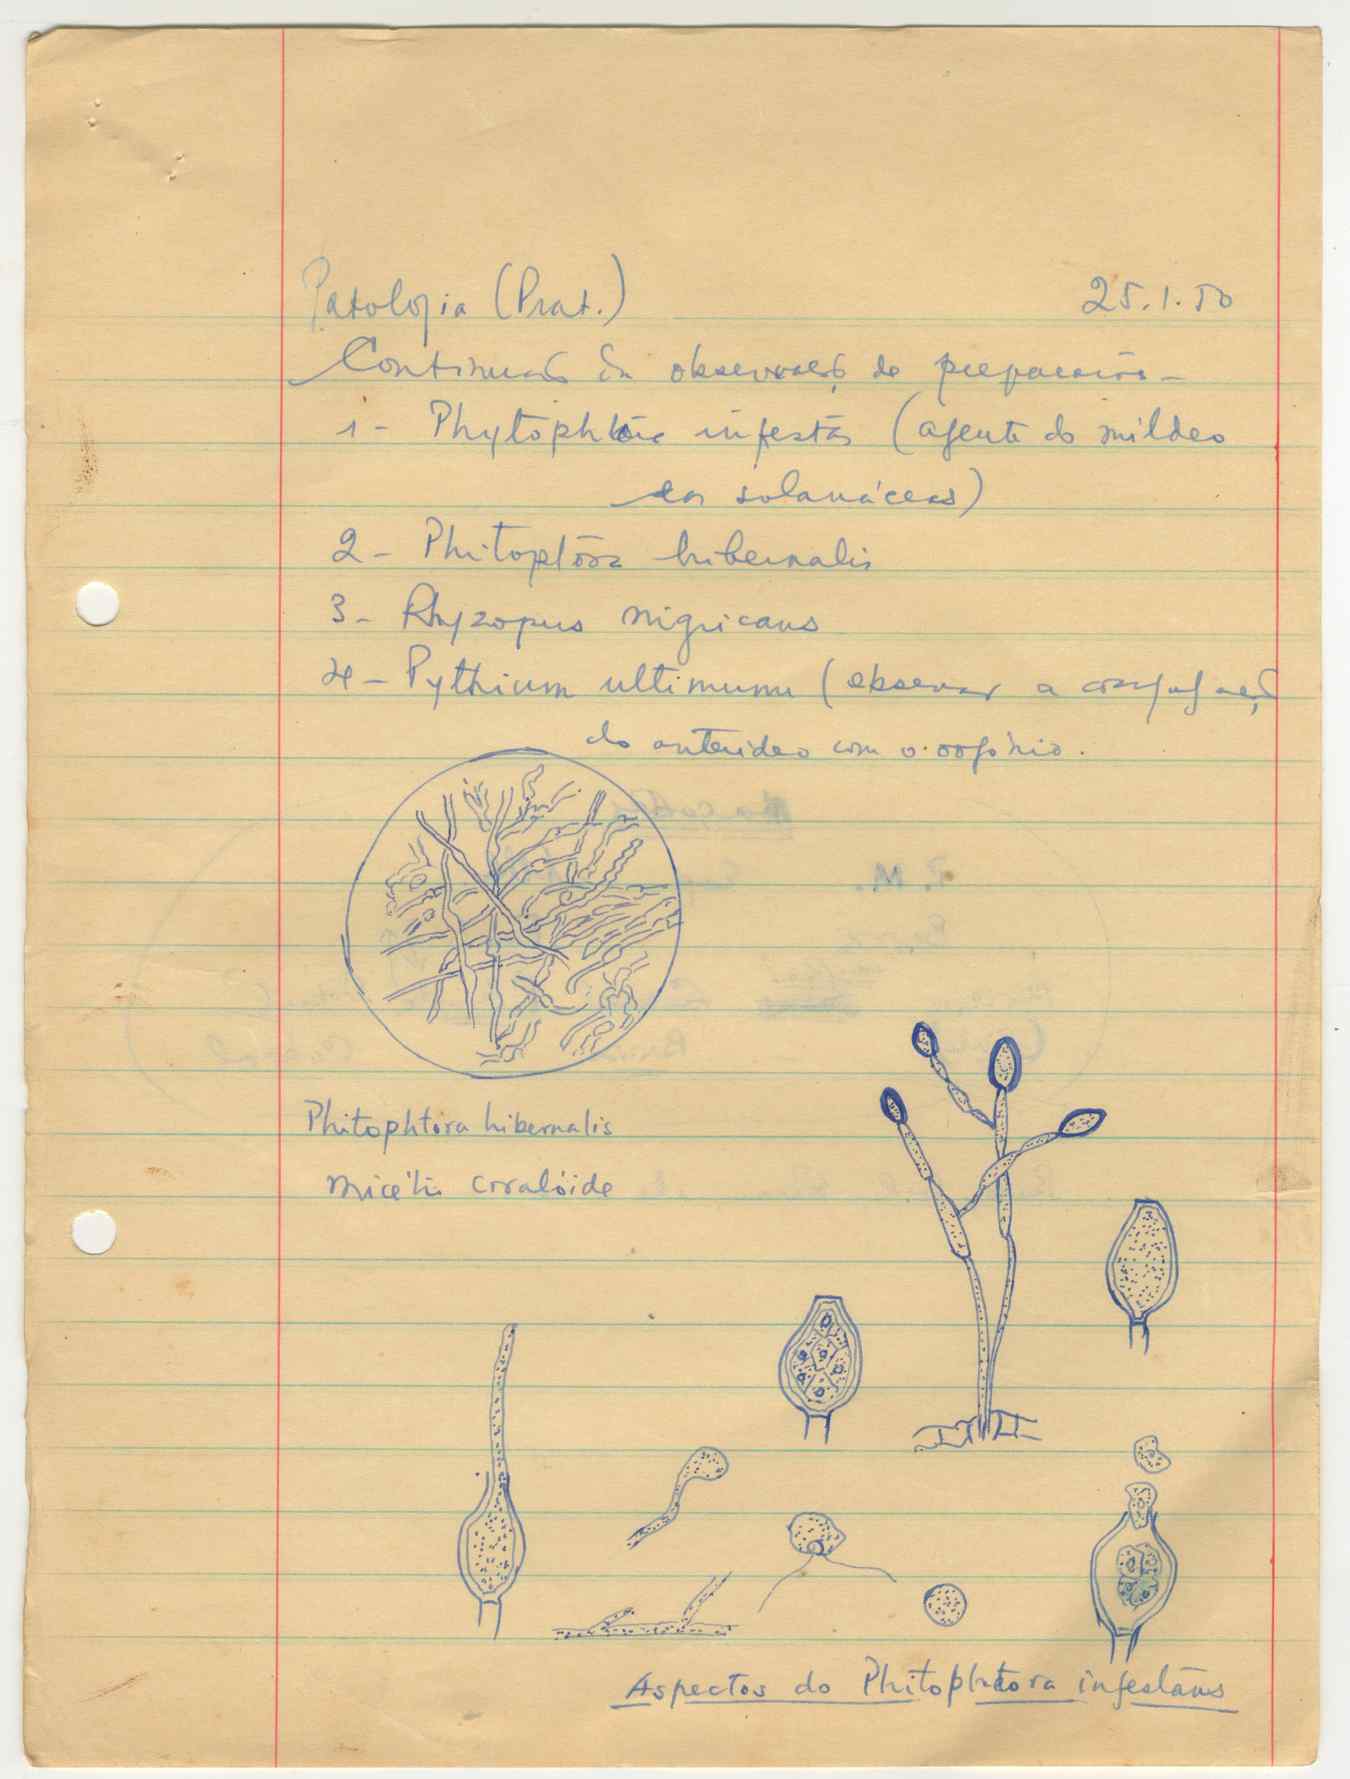 Patologia (Prat.) 25.1.50
Continuação da observação de preparações -
1 - Phytophtora infestans (agente do míldeo
das solanáceas)
2 - Phitoptora hibernalis
3 - Rhyzopus nigricans
4 - Pythium ultimum (observar a conjugação
do anterídeo com o oogónio.
Phitophtora hibernalis
micélio coralóide
Aspectos do Phitophtora infestans